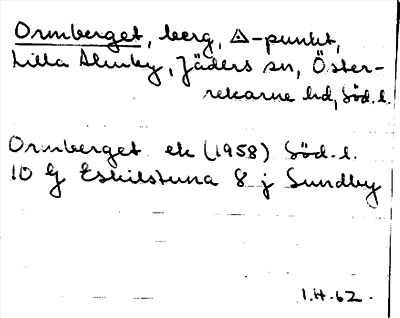 Ormberget, berg, △-punkt,
Lilla Almby, Jäders sn, Öster-
rekarne hd, Söd. l.
Ormberget ek (1958) Söd. l.
10 G Eskilstuna 8 j Sundby
1.H.62.